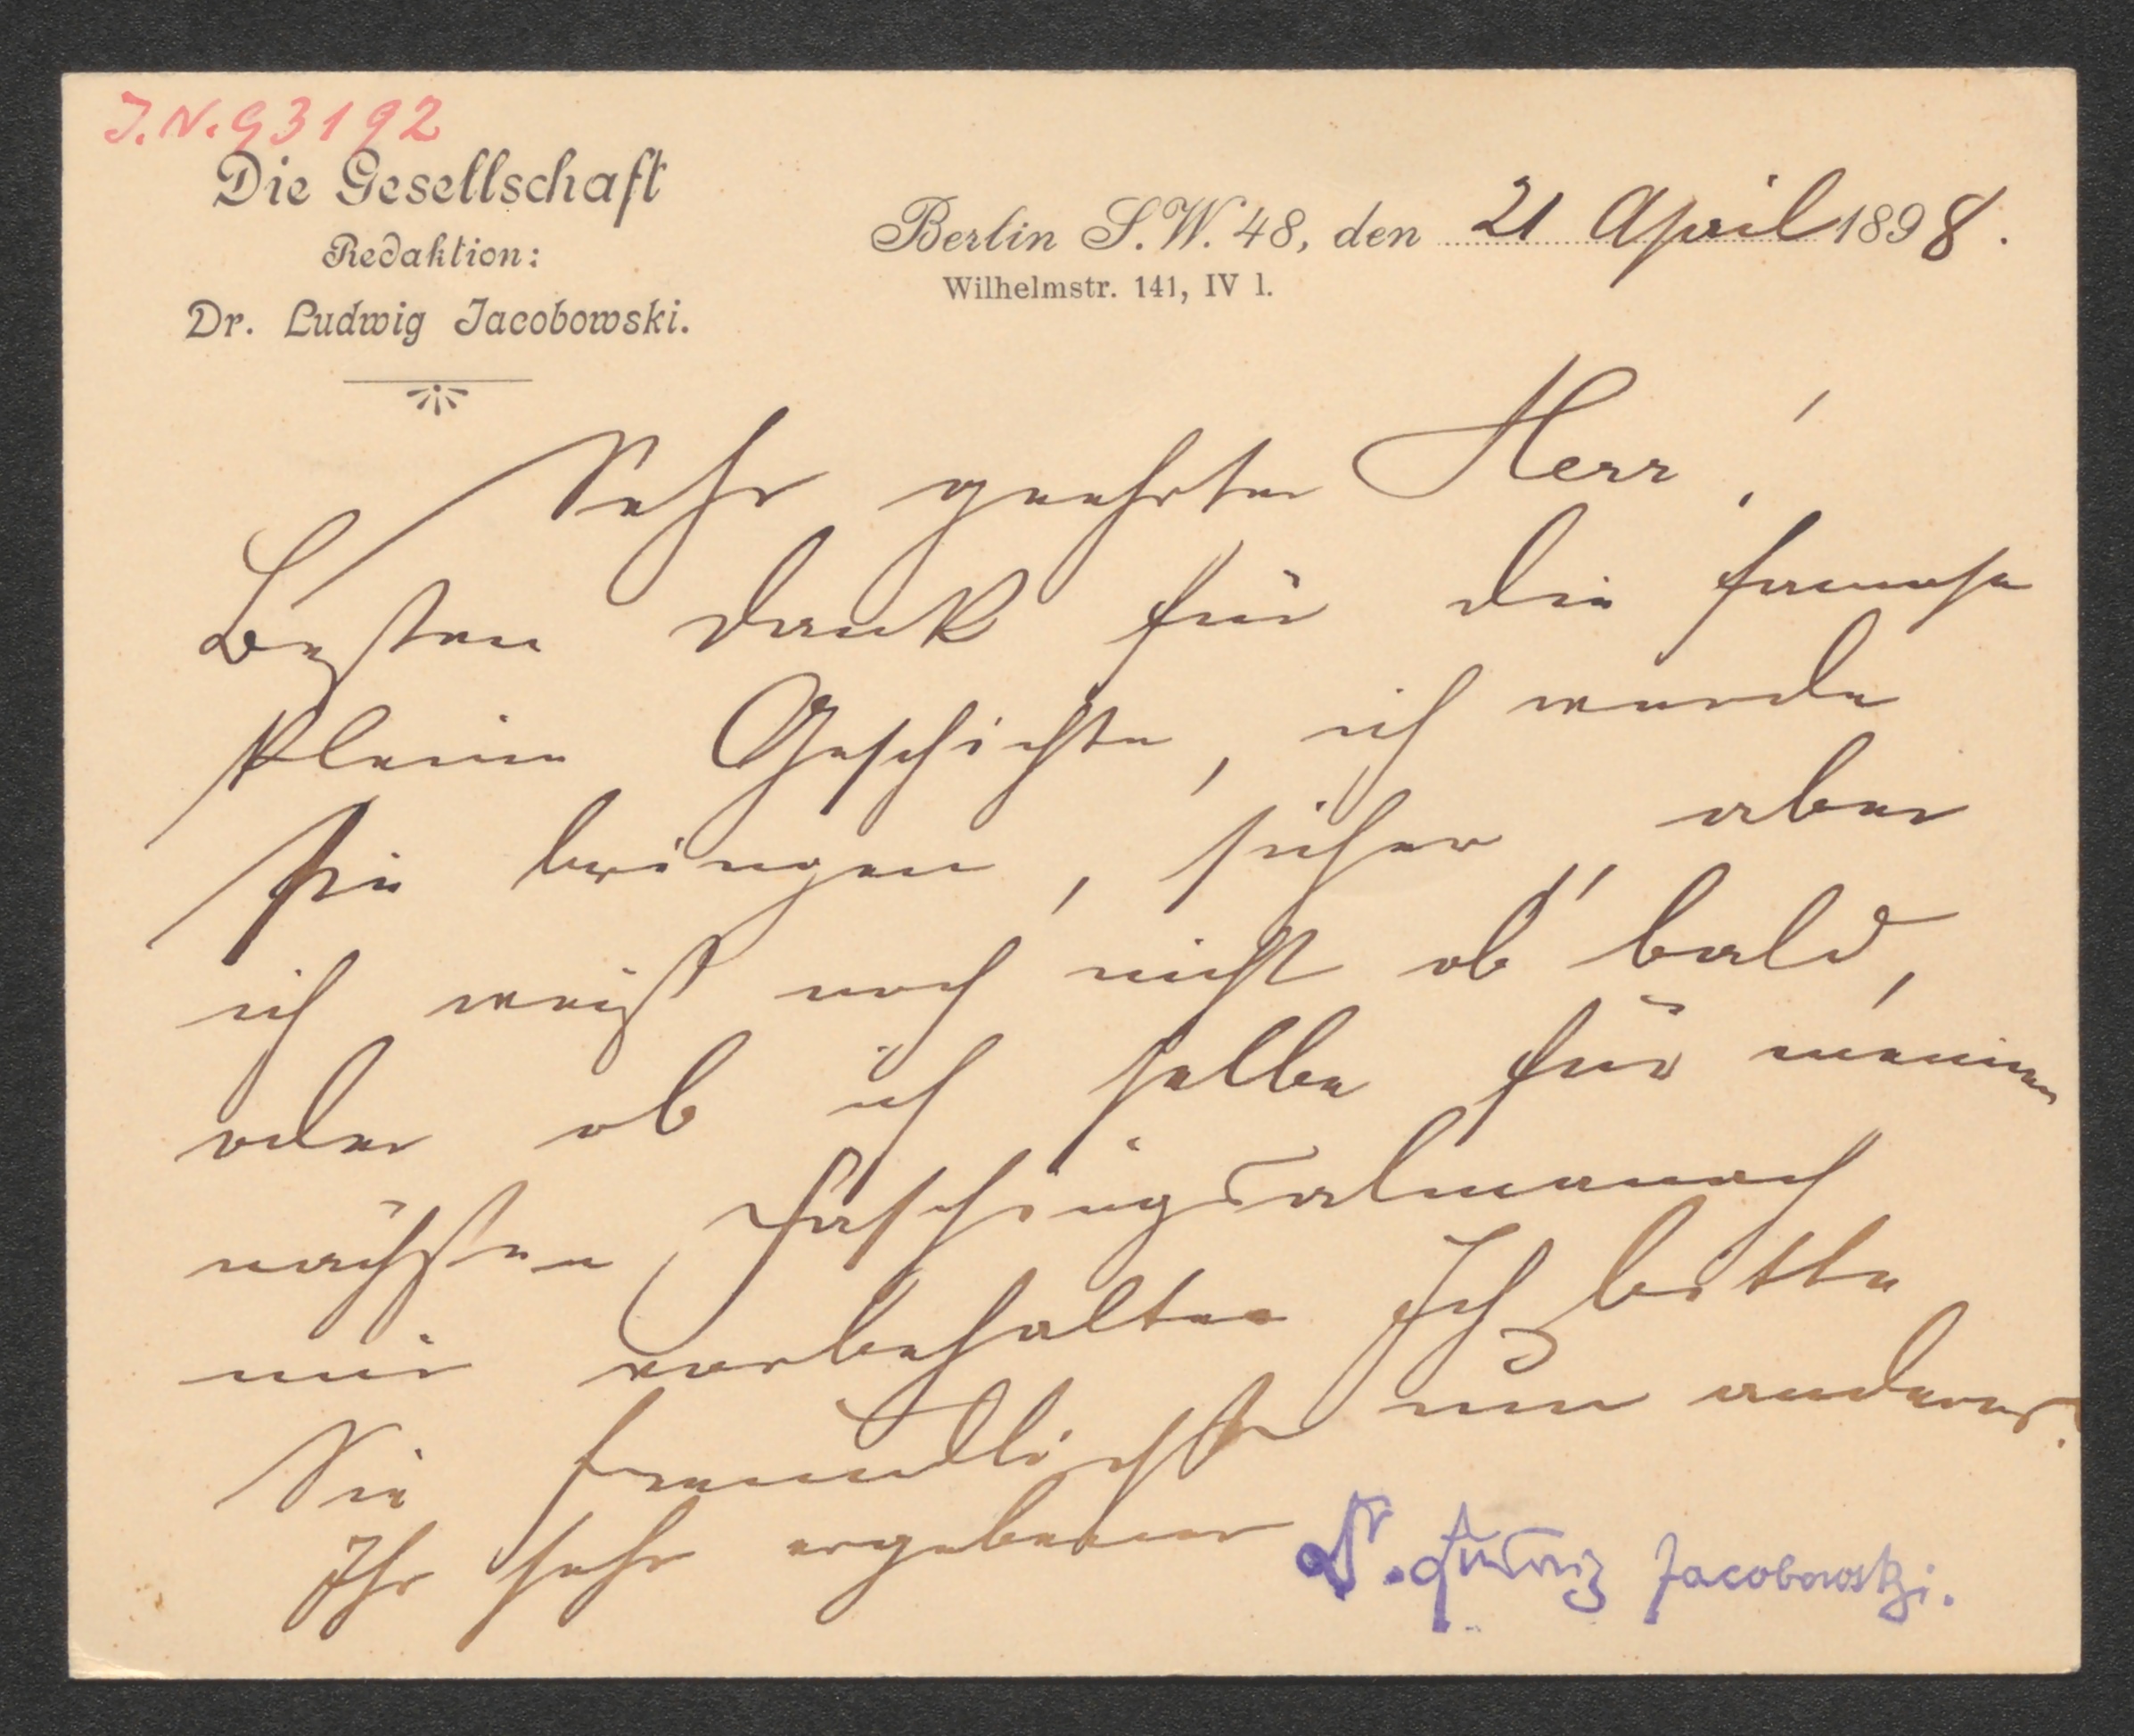 J.N. 93192
Die Gesellschaft
Redaktion:
Dr. Ludwig Jacobowski.
Berlin S.W. 48, den 21 April 1898.
Wilhelmstr. 141, IV l.
Sehr geehrter Herr!
Besten Dank für die famose
kleine Geschichte, ich werde
sie bringen, sicher, aber
ich weiß noch nicht ob bald,
oder ob ich selbe für meinen
nächsten Faschingsalmanach
mir vorbehalte. Ich bitte
Sie freundlichst um anderes.
Ihr sehr ergebener Dr. Ludwig Jacobowski.